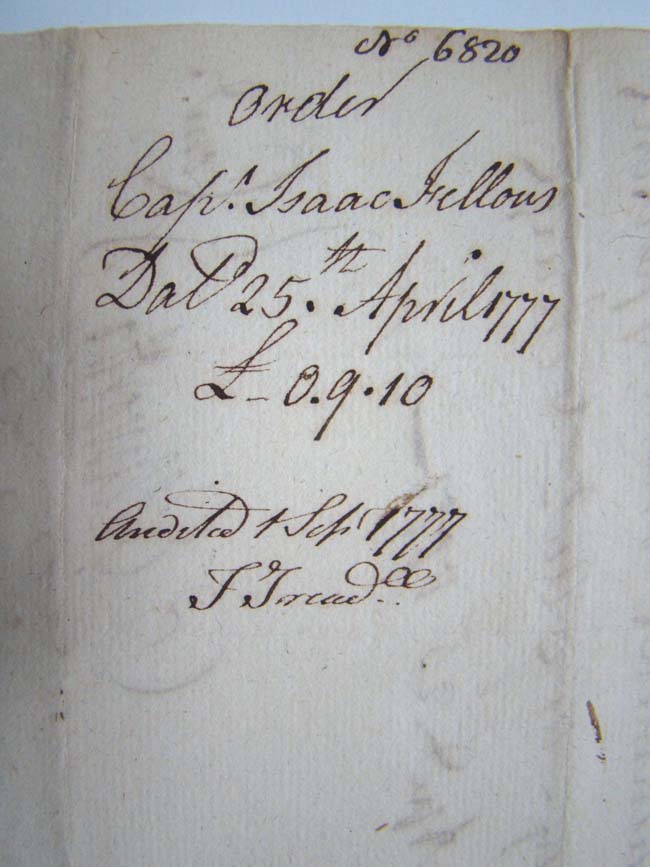 No 6820
Order
Capt. Isaac Fellows
Datd 25.th April 1777
£ - 0.9.10
Audited 1 Sept 1777